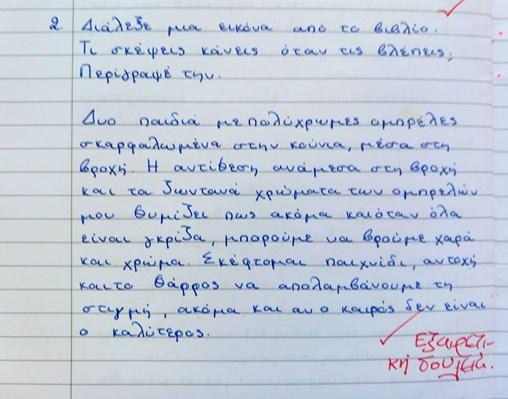 2. Διάλεξε μια εικόνα από το βιβλίο.
Τι σκέψεις κάνεις όταν τις βλέπεις;
Περίγραφέ την.
Δυο παιδιά με πολύχρωμες ομπρέλες
σκαρφαλωμένα στην κούνια, μέσα στη
βροχή. Η αντίθεση ανάμεσα στη βροχή
και τα ζωντανά χρώματα των ομπρελών
μου θυμίζει πως ακόμα και όταν όλα
είναι γκρίζα, μπορούμε να βρούμε χαρά
και χρώμα. Σκέφτομαι παιχνίδι, αντοχή
και το θάρρος να απολαμβάνουμε τη
στιγμή, ακόμα και αν ο καιρός δεν είναι
ο καλύτερος.
Εξαιρετι-
κή δουλειά.